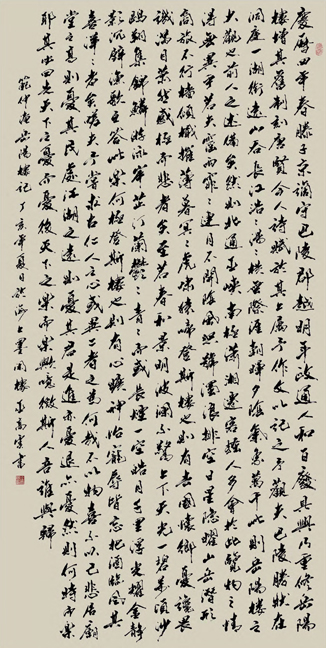 慶曆四年春滕子京謫守巴陵郡越明年政通人和百廢具興乃重修岳陽
樓增其舊制刻唐賢今人詩賦於其上屬予作文以記之予觀夫巴陵勝狀在
洞庭一湖銜遠山吞長江浩浩湯湯橫無際涯朝暉夕陰氣象萬千此則岳陽樓之
大觀也前人之述備矣然則北通巫峽南極瀟湘遷客騷人多會於此覽物之情
得無異乎若夫霪雨霏霏連月不開陰風怒號濁浪排空日星隱曜山岳潛形
商旅不行檣傾楫摧薄暮冥冥虎嘯猿啼登斯樓也則有去國懷鄉憂讒畏
譏滿目蕭然感極而悲者矣至若春和景明波瀾不驚上下天光一碧萬頃沙
鷗翔集錦鱗游泳岸芷汀蘭鬱鬱青青而或長煙一空皓月千里浮光耀金靜
影沉璧漁歌互答此樂何極登斯樓也則有心曠神怡寵辱皆忘把酒臨風其
喜洋洋者矣嗟夫予嘗求古仁人之心或異二者之為何哉不以物喜不以己悲居廟
堂之高則憂其民處江湖之遠則憂其君是進亦憂退亦憂然則何時而樂
耶其必曰先天下之憂而憂後天下之樂而樂歟噫微斯人吾誰與歸
范仲淹岳陽樓記 丁亥年夏月於海上墨閣樓 書